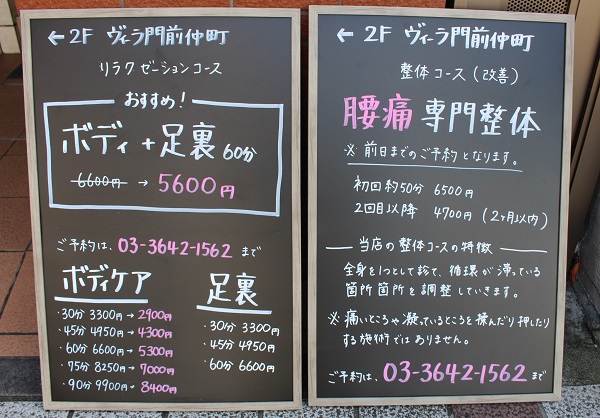 ← 2F ヴィラ門前仲町
リラクゼーションコース
おすすめ！
ボディ + 足裏 60分
6600円 → 5600円
ご予約は、03-3642-1562 まで
ボディケア
・30分 3300円→2900円
・45分 4950円→4300円
・60分 6600円→5300円
・75分 8250円→7000円
・90分 9900円→8400円
足裏
・30分 3300円
・45分 4950円
・60分 6600円
← 2F ヴィラ門前仲町
整体コース（改善）
腰痛 専門整体
※ 前日までのご予約となります。
初回約50分 6500円
2回目以降 4700円（2ヶ月以内）
当店の整体コースの特徴
全身を1つとして診て、循環が滞っている
箇所箇所を調整していきます。
※ 痛いところや凝っているところを揉んだり押したり
する施術ではありません。
ご予約は、03-3642-1562 まで